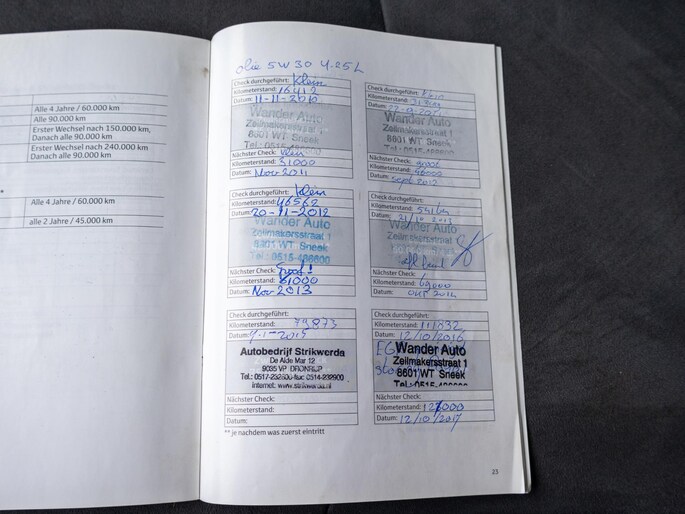 Alle 4 Jahre / 60.000 km
Alle 90.000 km
Erster Wechsel nach 150.000 km,
Danach alle 90.000 km
Erster Wechsel nach 240.000 km
Danach alle 90.000 km
**
Alle 4 Jahre / 60.000 km
alle 2 Jahre / 45.000 km
olie 5W30 4.25L
Check durchgeführt: Klein
Kilometerstand: 16412
Datum: 11-11-2010
Wander Auto
Zeilmakersstraat 1
8601 WT Sneek
Tel.: 0515-
Nächster Check: Klein
Kilometerstand: 31000
Datum: Nov 2011
Check durchgeführt: Klein
Kilometerstand:
Datum:
Wander Auto
Zeilmakersstraat 1
8601 WT Sneek
Nächster Check: groot
Kilometerstand: 46000
Datum: sept 2012
Check durchgeführt: Klein
Kilometerstand: 46562
Datum: 20-11-2012
Wander Auto
Zeilmakersstraat 1
8601 WT Sneek
Tel.: 0515-
Nächster Check: Groot!
Kilometerstand: 61000
Datum: Nov 2013
Check durchgeführt:
Kilometerstand:
Datum: 21/10 2013
Wander Auto
Zeilmakersstraat
8601 WT Sneek
Nächster Check:
Kilometerstand: 69000
Datum: okt 2014
Check durchgeführt:
Kilometerstand: 79873
Datum:
Autobedrijf Strikwerda
De Alde Mar 12
9035 VP DRONRIJP
Internet: www.strikwerda.nl
Nächster Check:
Kilometerstand:
Datum:
** je nachdem was zuerst eintritt
Check durchgeführt:
Kilometerstand: 111832
Datum: 12/10/2016
Wander Auto
Zeilmakersstraat 1
8601 WT Sneek
Nächster Check:
Kilometerstand: 127000
Datum: 12/10/2017
23